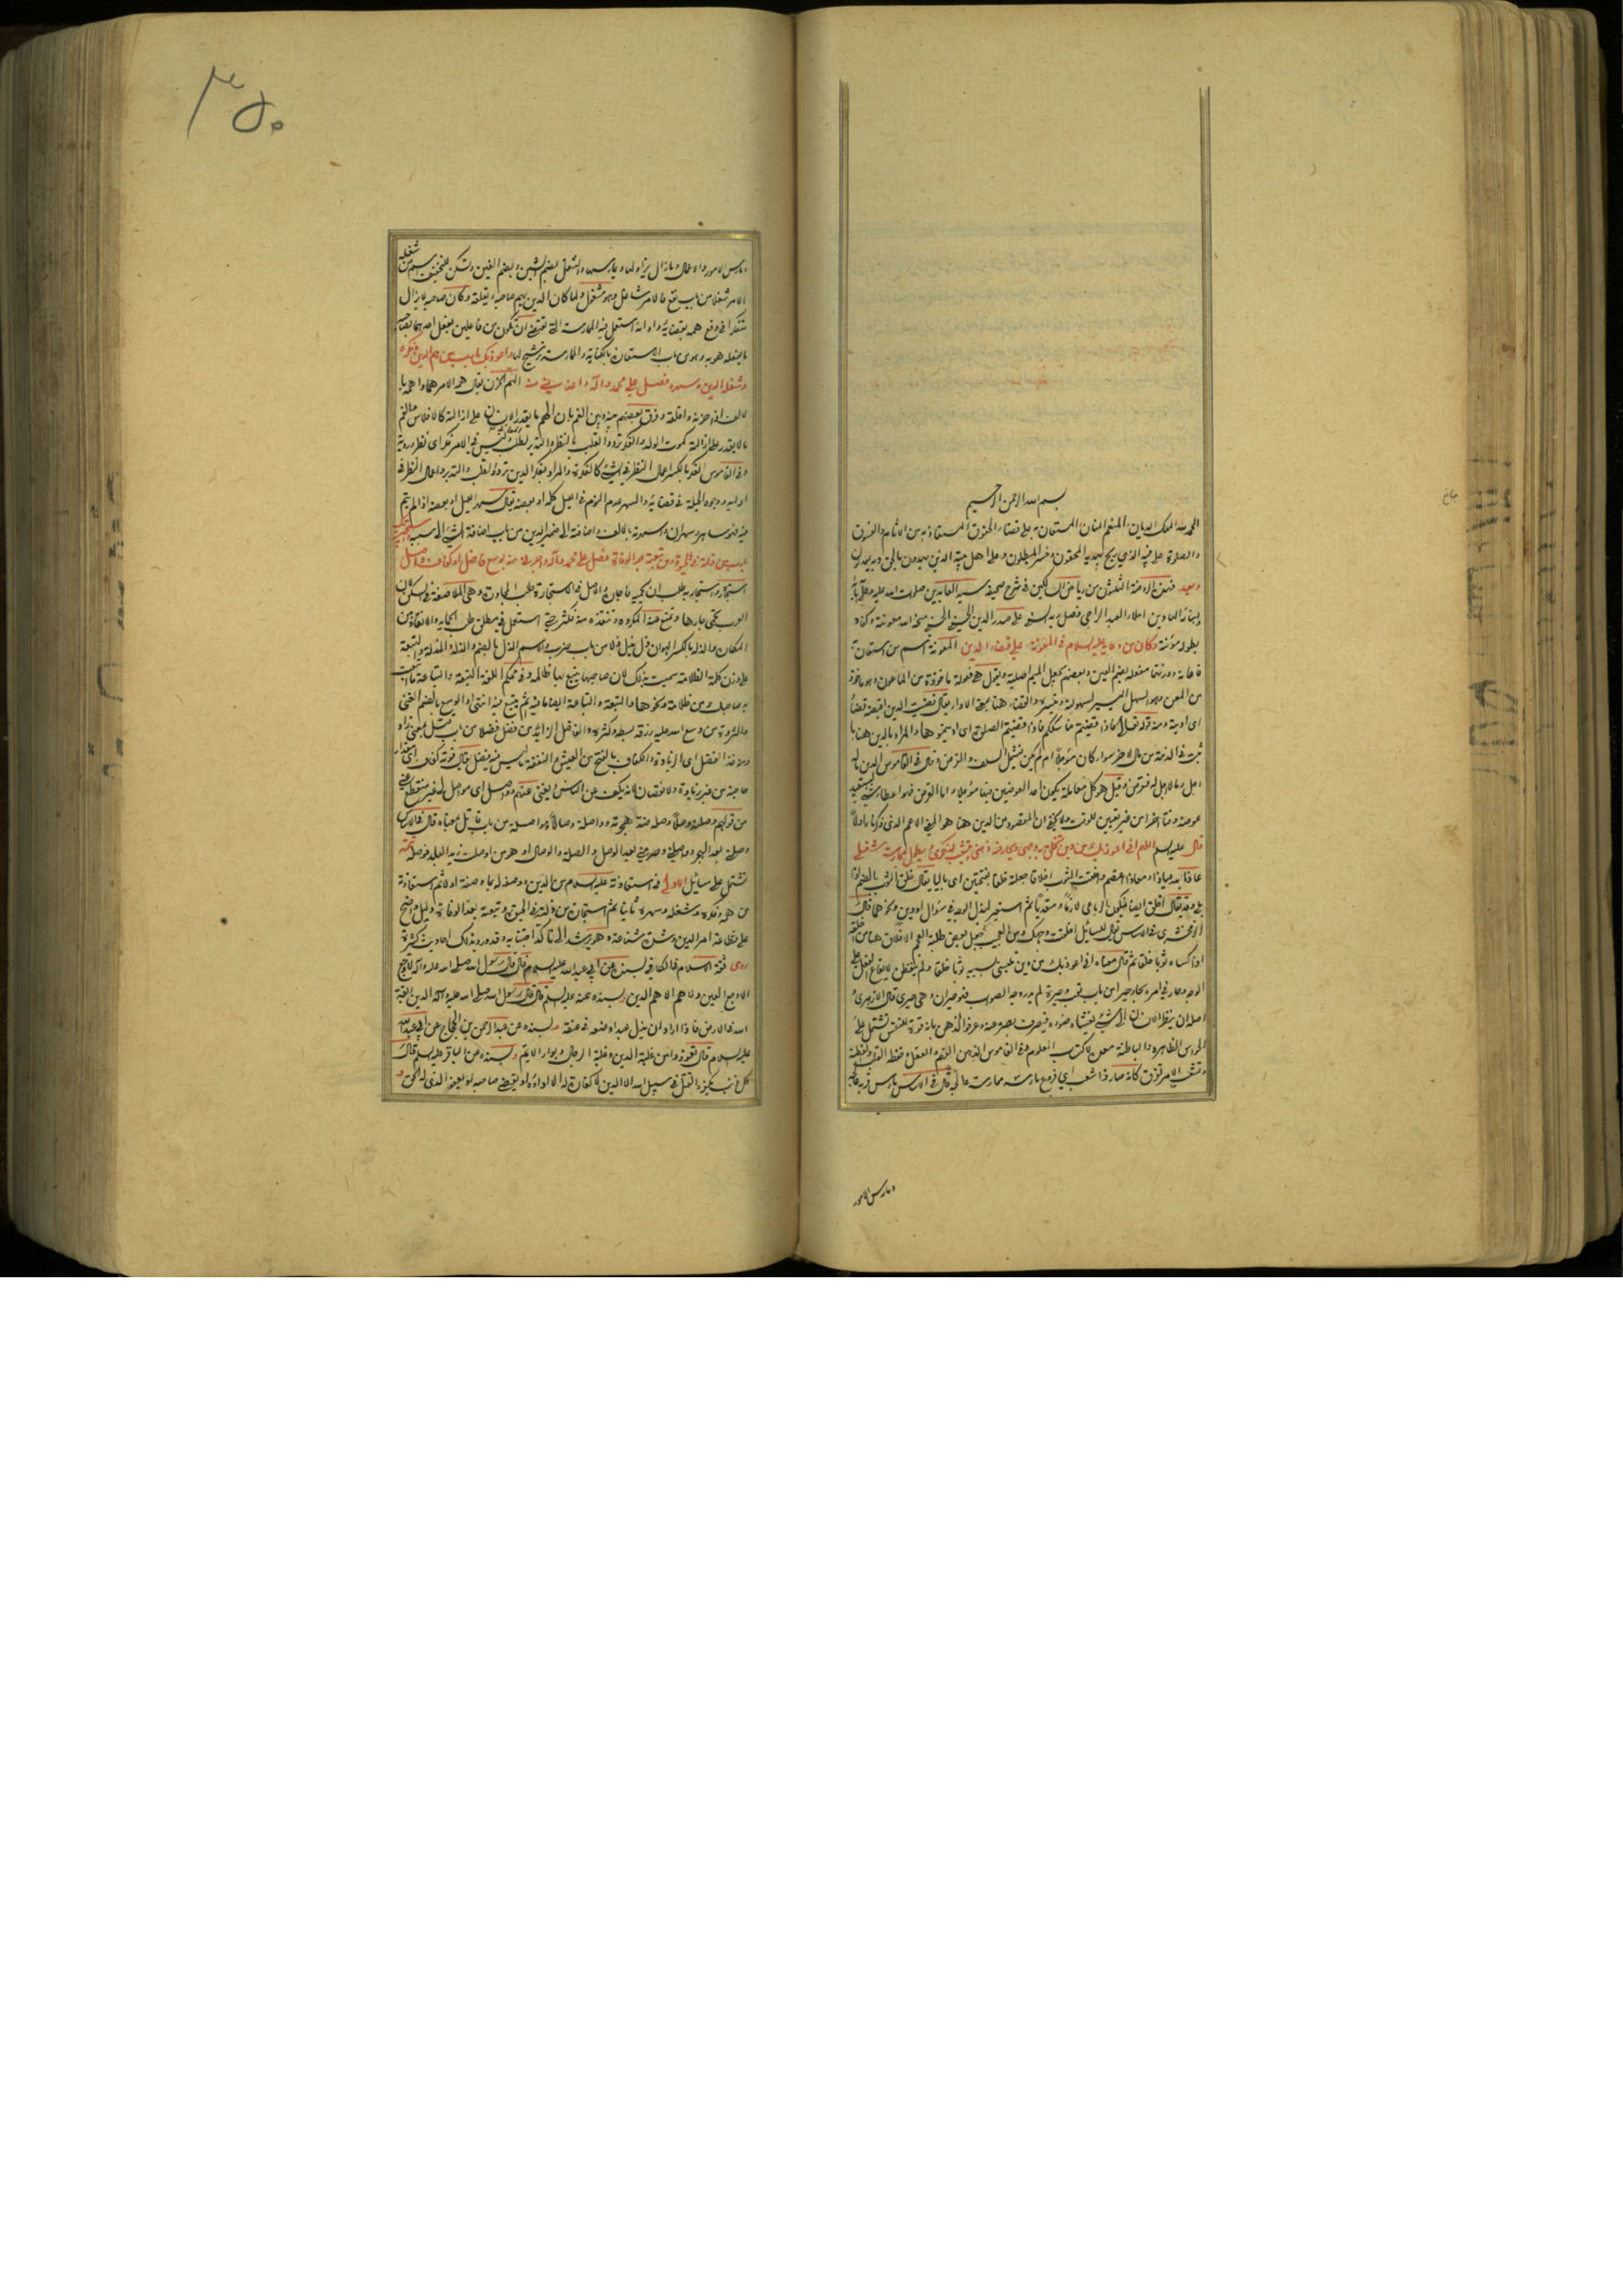 بسم الله الرحمن الرحيم
الحمد لله الملك الديان المنعم المنان المستعان به على قضاء الحقوق المستعاذ به من الاثام والعقوق
والصلوة على نبيه الذي يحج بهديه المحقون وخسر المبطلون وعلى اهل بيته الذين يهدون بالحق وبه يعدلون
وبعد فهذه الروضة الثلثون من رياض السالكين في شرح صحيفة سيد العابدين صلوات الله عليه وعلى آبائه
وابنائه الهادين املاء العبد الراجي فضل ربه السني علي صدر الدين الحسيني الحسني منحه الله معونته وكفاه
بطوله مؤنته وكان من دعائه عليه السلام في المعونة على قضاء الدين المعونة اسم من استعان به
فاعانه ووزنها مفعلة بضم العين وبعضهم يجعل الميم اصلية ويقول هي فعولة ماخوذة من الماعون
من المعن وهو السهل اليسير لسهولته وتيسره والقضاء هنا بمعنى الاداء يقال قضيت الدين اقضيه قضاء
اى اديته ومنه قوله تعالى فاذا قضيتم مناسككم فاذا قضيتم الصلوة اى اديتموها والمراد بالدين هنا ما
ثبت في الذمة من مال الآخر سواء كان مؤجلا ام لم يكن فيشمل السلف والقرض وقال في القاموس الدين ماله
اجل وما لا اجل له فقرض وقيل هو كل معاملة يكون احد العوضين فيها مؤجلا واما القرض فهو اعطاء شيء ليستعيد
عوضه وقتا اخر من غير تعيين للوقت ولا يخفى ان المقصود من الدين هنا هو المعنى الاعم الذي ذكرناه اولا
قال عليه السلم اللهم انى اعوذ بك من دين تخلق به وجهى ويحار فيه ذهنى ويتشعب له فكرى ويطول بممارسته شغلى
عاذ بالله عياذا ومعاذا اعتصم واخلقت الثوب اخلاقا جعلته خلقا بفتحتين اى باليا يقال خلق الثوب بالضم اذا
بلى وقد يقال اخلق ايضا فيكون الرباعى لازما ومتعديا ثم استعير لبذل الوجه في سؤال او دين ونحوهما قال
الزمخشرى في الاساس يقال للسائل اخلقت وجهك ومن العجيب جعل بعض طلبة العجم الاخلاق هنا من اخلقه
اذا كساه ثوبا خلقا ثم قال معناه انى اعوذ بك من دين تلبسنى بسببه ثوبا خلقا ولم يتفطن لايقاع الفعل على
الوجه وحار في امره يحار حيرا من باب تعب وحيرة لم يدر وجه الصواب فهو حيران وهي حيرى قال الازهرى
اصله ان ينظر الانسان الى شيء فيغشاه ضوءه فيصرف بصره عنه وعرفوا الذهن بانه قوة للنفس تشتمل على
الحواس الظاهرة والباطنة معدة لاكتساب العلوم وفي القاموس الذهن الفهم والعقل وحفظ القلب والفطنة
وتشعب الامر تفرق كانه صار ذا شعب اي فروع مارسته ممارسة عالجته قال في الاساس مارس قرنه عالجه
ومارس الامور
ومارس الامور والاعمال وما زال يزاولها ويمارسها والشغل بضم الشين وبضم الغين وتسكن للتخفيف اسم من شغله
الامر شغلا من باب نفع فالامر شاغل وهو مشغول ولما كان الدين يهم صاحبه ويقلقه وكان صاحبه لا يزال
متفكرا في دفع همه بقضائه وادائه استعمل فيه الممارسة التي تقتضى ان تكون من فاعلين يفعل احدهما بصاحبه
ما يفعله هو به وهو من باب الاستعارة بالكناية والممارسة ترشيح لها واعوذ بك يا رب من هم الدين وفكره
وشغل الدين وسهره فصل على محمد وآله واعذني منه الهم الحزن يقال همه الامر هما واهمه
بالالف اذا احزنه واقلقه وفرق بعضهم بينه وبين الغم بان الهم ما يقدر الانسان على ازالته كالافلاس مثلا والغم
ما لا يقدر على ازالته كموت الولد والفكر تردد القلب بالنظر والتدبر لطلب المعانى ولي في الامر فكر اى نظر وروية
وفي القاموس الفكر بالكسر اعمال النظر في الشيء كالفكرة والمراد بفكر الدين تردد القلب والتدبر واعمال النظر في
ادائه ووجوه الحيلة في قضائه والسهر عدم النوم في الليل كله او بعضه يقال سهر الليل او بعضه اذا لم ينم
فيه فهو ساهر وسهران واسهرته بالالف واضافته الى ضمير الدين من باب اضافة الشيء الى سببه واستجير بك
يا رب من ذلته في الحيوة ومن تبعته بعد الوفاة فصل على محمد وآله واجرنى منه بوسع فاضل او كفاف واصل
استجاره واستجار به طلب ان يحميه فاجاره والاصل في الاستجارة طلب الجوار وهي الملاصقة في السكن لان
العرب تحمى جارها وتمنع عنه المكروه وتنقذه منه فكثر حتى استعمل في مطلق طلب الحماية والانقاذ من
المكاره والذلة بالكسر الهوان ذل يذل ذلا من باب ضرب والاسم الذل بالضم والذلة والمذلة والتبعة
على وزن كلمة الظلامة سميت بذلك لان صاحبها يتبع بها ظالمه وفي محكم اللغة التبعة والتباعة ما اتبعت
به صاحبك من ظلامة ونحوها والتبعة والتباعة ايضا ما فيه اثم يتبع فيه انتهى والوسع بالضم الغنى
والثروة من وسع الله عليه رزقه بسطه وكثره والفاضل الزائد من فضل فضلا من باب قتل بمعنى زاد
ومنه خذ الفضل اى الزيادة والكفاف بالفتح من العيش والنفقة ما ليس فيه فضل يقال قوته كفاف اى مقدار
حاجته من غير زيادة ولا نقصان لانه يكف عن الناس ويغنى عنهم وواصل اى مواصل له غير منقطع
من قولهم وصله وصلا وصلة ضد هجرته وواصله وصالا ومواصلة من باب قاتل بمعناه قال في الاساس
وصلنى بعد الهجر وواصلنى وصرمنى بعد الوصل والصلة والوصال او هو من اوصلت زيد البلد فوصله تتمه
تشتمل على مسائل الاولى في استعاذته عليه السلام من الدين ووصفه له بما وصفه اولا ثم استعاذته
من همه وفكره وشغله وسهره ثانيا ثم استجارته من ذلته في الحيوة وتبعته بعد الوفاة دليل واضح
على فظاعة امر الدين وشدة شناعته وهو يرشد الى تاكد اجتنابه وقد ورد بذلك احاديث كثيرة
روى ثقة الاسلام في الكافي بسنده عن ابى عبد الله عليه السلام قال قال رسول الله صلى الله عليه وآله لا وجع
الا وجع العين ولا هم الا هم الدين وبسنده عنه عليه السلم قال قال رسول الله صلى الله عليه وآله الدين ربقة
الله في الارض فاذا اراد ان يذل عبدا وضعه في عنقه وبسنده عن عبد الرحمن بن الحجاج عن ابى عبد الله
عليه السلام قال تعوذوا بالله من غلبة الدين وغلبة الرجال وبوار الايم وبسنده عن الباقر عليه السلم قال
كل ذنب يكفره القتل في سبيل الله الا الدين لا كفارة له الا اداؤه او يقضى صاحبه او يعفو الذي له الحق و